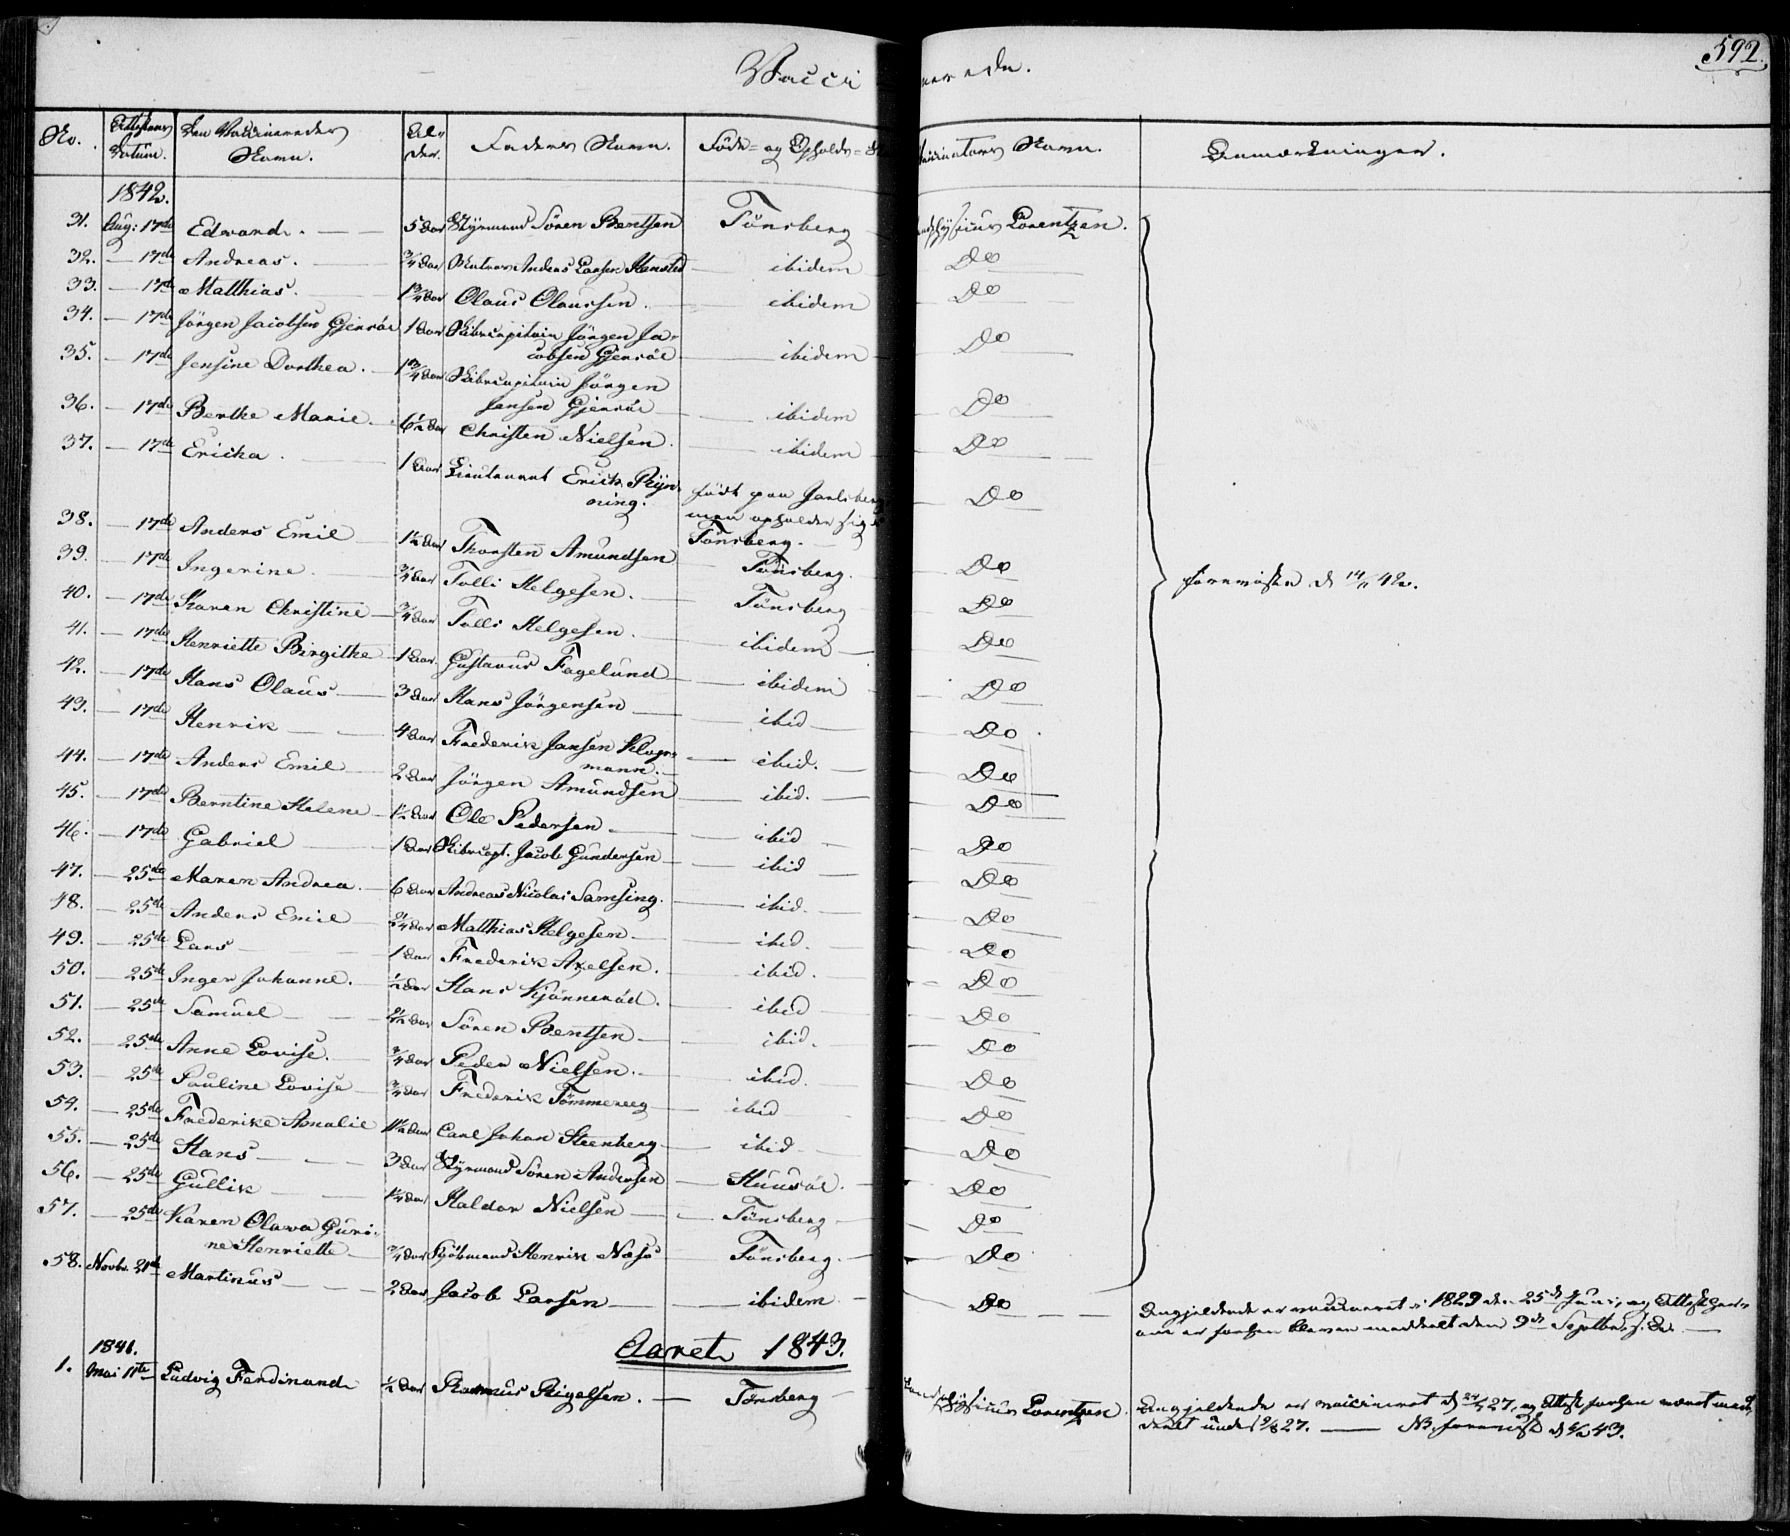 592.
Vaccinerede.
No. Attestens Datum. Den Vaccineredes Navn. Alder. Faderens Navn. Føde- og Opholds- Vaccinateurs Navn. Anmærkninger.
1842.
31. Aug: 17de Edvard. 5 Aar Styrmand Sören Bentsen Tönsberg Landphysicus Lorentzen.
32. — 17de Andreas. 3/4 Aar Matros Anders Larsen ibidem Do
33. — 17de Matthias. 1 3/4 Aar Olaus Olaussen. ibidem Do
34. — 17de Jörgen Jacobsen Gjersöe 1 Aar Skibscapitain Jörgen Ja-
cobsen Gjersöe ibidem Do
35. — 17de Jensine Dorthea. 1 3/4 Aar Skibscapitain Jörgen
Jansen Gjersöe ibidem Do
36. — 17de Berthe Marie. 6 1/2 Aar Christen Nielsen. ibidem Do
37. — 17de Ericka. 1 Aar Lieutenant Erich Ryn-
ning. födt paa Jarlsberg
men opholder sig i
Tönsberg. Do
38. — 17de Anders Emil 1 1/2 Aar Thorsten Amundsen Tönsberg. Do
39. — 17de Ingerine. 3/4 Aar Tolli Helgesen. Tönsberg Do foreviste d 14/11 42.
40. — 17de Karen Christine 3/4 Aar Tolli Helgesen. ibidem Do
41. — 17de Henriette Birgithe 1 Aar. Gustavus Fagelund ibidem Do
42. — 17de Hans Olaus 3 Aar Hans Jörgensen ibid Do
43. — 17de Henrik 4 Aar Frederik Jansen Klop-
mann. ibid. Do
44. — 17de Anders Emil 2 Aar Jörgen Amundsen ibid. Do
45. — 17de Berntine Helene 1 1/2 Aar Ole Pedersen ibid Do
46. — 17de Gabriel 1 Aar Skibscapt. Jacob Gundersen ibid Do
47. — 25de Maren Andrea. 6 Aar Andreas Nicolai Samsing. ibid. Do
48. — 25de Anders Emil Aar Matthias Helgesen ibid. Do
49. — 25de Lars 1 Aar Frederik Axelsen. ibid. Do
50. — 25de Inger Johanne. 1/2 Aar Hans Kjönneröd. ibid Do
51. — 25de Samuel Aar Sören Bentsen ibid. Do
52. — 25de Anne Lovise. 3/4 Aar Peder Nielsen. ibid. Do
53. — 25de Pauline Lovise 3/4 Aar Frederik Tömmereeg ibid Do
54. — 25de Frederike Amalie 1 1/2 Aar Carl Johan Steenberg ibid Do
55. — 25de Hans 3 Aar Styrmand Sören Andersen Huusöe. Do
56. — 25de Gullik 1 1/4 Aar Haldor Nielsen Tönsberg Do
57. — 25de Karen Olava Guri-
ne Henriette 3/4 Aar Kjöbmand Henrik Næss Tönsberg. Do
58. Novbr. 21de Martinus 2 Aar Jacob Larsen ibidem Do Angjeldende er vaccineret i 1829 den 25de Juni, og Attest her-
om er forhen bleven meddeelt den 9de Septbr. s. A.
Aaret 1843.
1841.
1. Mai 11te Ludvig Ferdinand 1/2 Aar Rasmus Rigelsen. Tönsberg Landphysicus Lorentzen. Angjeldende er vaccineret d 27, og Attest forhen været med-
deelt under 27. — NB. forevist d 43.